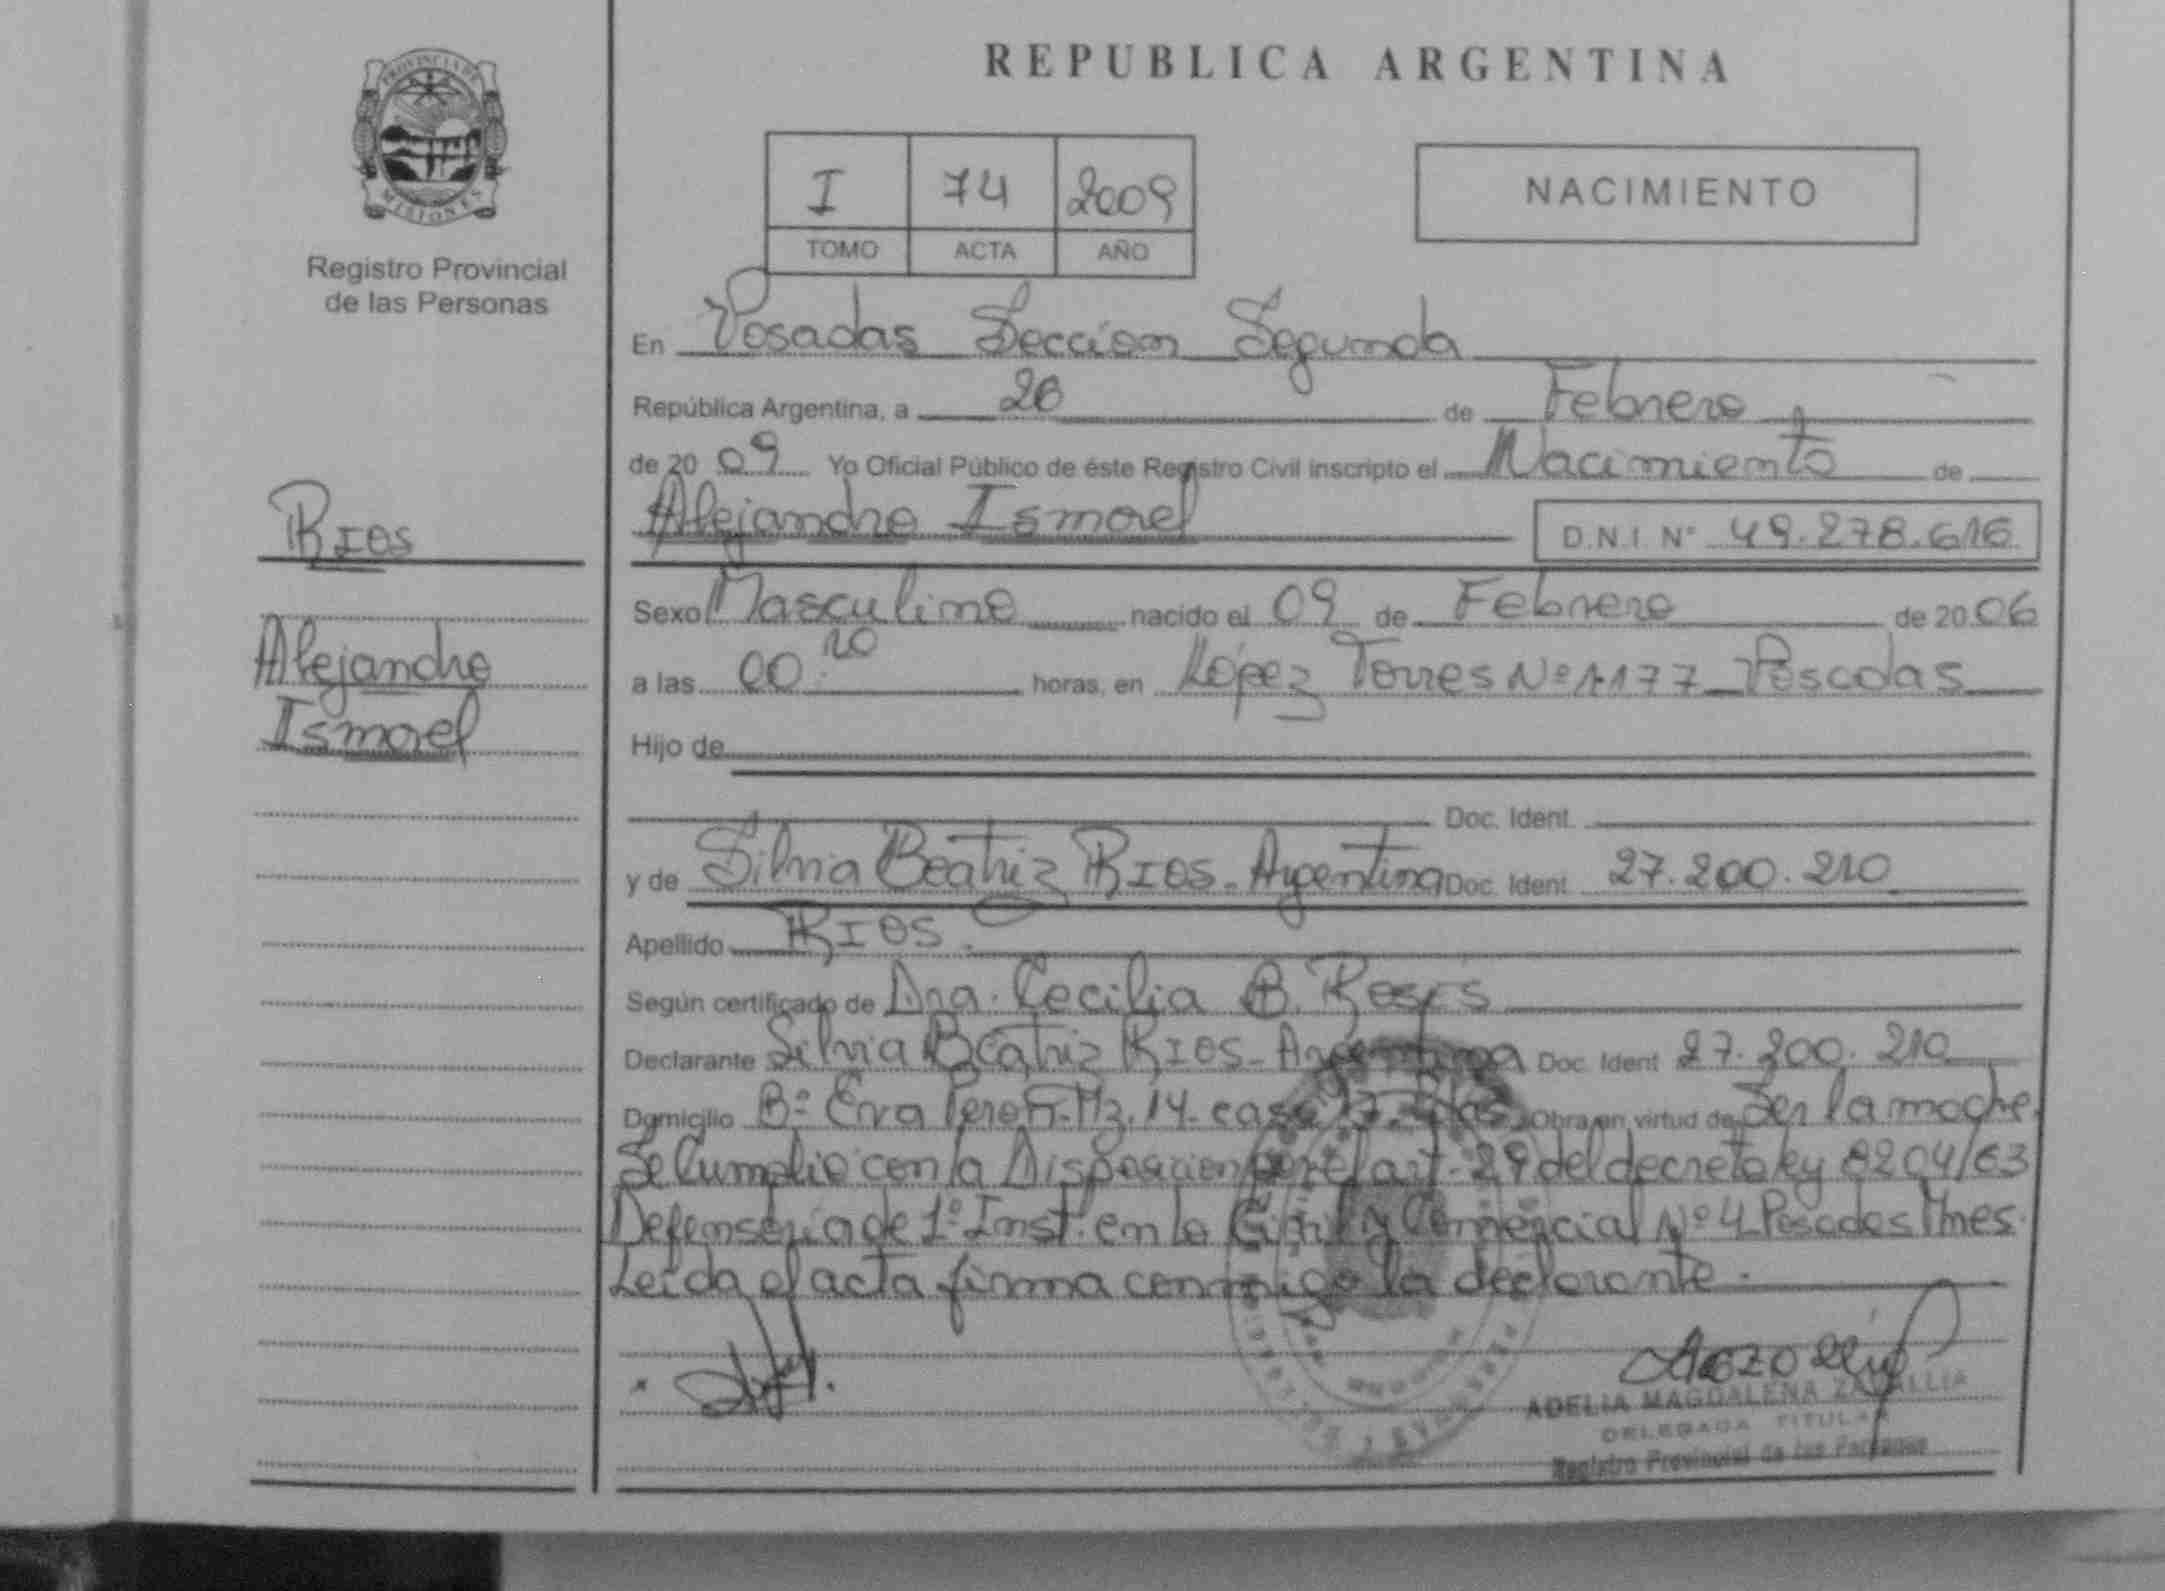 PROVINCIA DE
MISIONES
Registro Provincial
de las Personas
RIOS
Alejandro
Ismael
REPUBLICA ARGENTINA
I 74 2009
TOMO ACTA AÑO
NACIMIENTO
En Posadas Seccion Segunda
República Argentina, a 26 de Febrero
de 20 09 Yo Oficial Público de éste Registro Civil inscripto el Nacimiento de
Alejandro Ismael D.N.I. Nº 49.278.616
Sexo Masculino nacido el 09 de Febrero de 20 06
a las 00:10 horas, en López Torres Nº 1177 Posadas
Hijo de
Doc. Ident.
y de Silvia Beatriz RIOS - Argentina Doc. Ident. 27.200.210
Apellido RIOS.
Según certificado de Dra. Cecilia B.
Declarante Silvia Beatriz RIOS - Argentina Doc. Ident 27.200.210
Domicilio Bº Eva Peron - Mz. 14 - casa Obra en virtud de Ser la madre.
Se Cumplio con la Disposicion por el art. 29 del decreto ley 8204/63
Defensoria de 1º Inst. en lo Civil y Comercial Nº 4 Posadas Mnes.
Leida el acta firma conmigo la declarante.
ADELIA MAGDALENA
DELEGADA TITULAR
Registro Provincial de las Personas